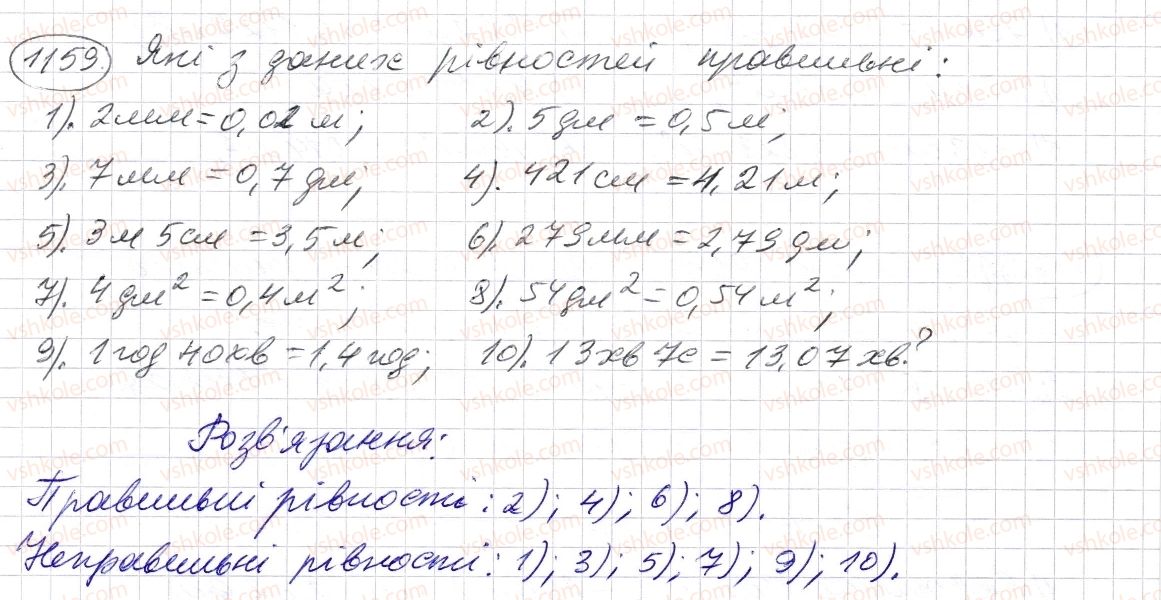 1159. Які з даних рівностей правильні:
1). 2мм = 0,02 м; 2). 5дм = 0,5м;
3). 7мм = 0,7 дм; 4). 421см = 4,21м;
5). 3м 5см = 3,5м; 6). 279мм = 2,79дм;
7). 4дм² = 0,4м²; 8). 54дм² = 0,54м²;
9). 1год 40хв = 1,4год; 10). 13хв 7с = 13,07хв?
Розв'язання:
Правильні рівності: 2); 4); 6); 8).
Неправильні рівності: 1); 3); 5); 7); 9); 10).
vshkole.com